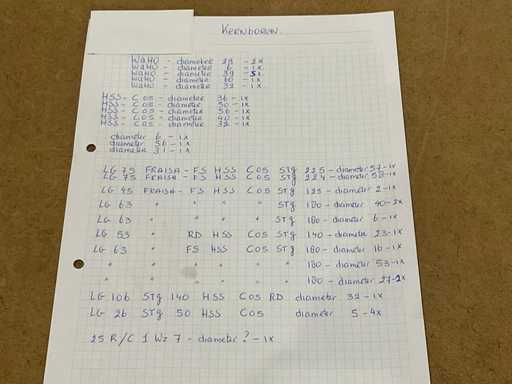 KERNBOREN.
WOHO - diameter 29 - 2x
WOHO - diameter 6 - 1x
WOHO - diameter 39 - 5x
WOHO - diameter 60 - 1x
WOHO - diameter 32 - 1x
HSS - COS - diameter 36 - 1x
HSS - COS - diameter 30 - 1x
HSS - COS - diameter 56 - 1x
HSS - COS - diameter 40 - 1x
HSS - COS - diameter 32 - 1x
diameter 6 - 1x
diameter 56 - 1x
diameter 31 - 1x
LG 75 FRAISA - FS HSS COS Stg 225 - diameter 57 - 1x
LG 75 FRAISA - FS HSS COS Stg 224 - diameter 58 - 1x
LG 45 FRAISA - FS HSS COS Stg 125 - diameter 2 - 1x
LG 63 " " " " Stg 180 - diameter 40 - 2x
LG 63 " " " " Stg 180 - diameter 6 - 1x
LG 53 " RD HSS COS Stg 140 - diameter 23 - 1x
LG 63 " FS HSS COS Stg 180 - diameter 16 - 1x
" " " " " " " 180 - diameter 53 - 1x
" " " " " " " 180 - diameter 27 - 2x
LG 106 Stg 140 HSS COS RD diameter 32 - 1x
LG 26 Stg 50 HSS COS diameter 5 - 4x
25 R/C 1 Wz 7 - diameter ? - 1x